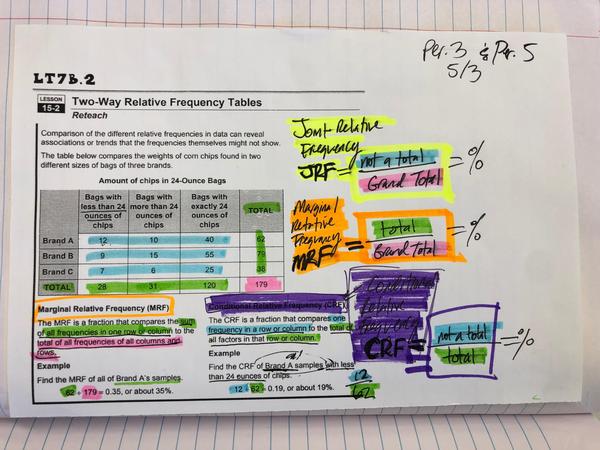 Per. 3 & Per. 5
5/3
LT7B.2
LESSON 15-2
Two-Way Relative Frequency Tables
Reteach
Comparison of the different relative frequencies in data can reveal
associations or trends that the frequencies themselves might not show.
The table below compares the weights of corn chips found in two
different sizes of bags of three brands.
Amount of chips in 24-Ounce Bags
Bags with less than 24 ounces of chips
Bags with more than 24 ounces of chips
Bags with exactly 24 ounces of chips
TOTAL
Brand A 12 10 40 62
Brand B 9 15 55 79
Brand C 7 6 25 38
TOTAL 28 31 120 179
Joint Relative
Frequency
JRF = not a total / Grand Total = %
Marginal
Relative
Frequency
MRF = total / Grand Total = %
Conditional
relative
frequency
CRF = not a total / total = %
Marginal Relative Frequency (MRF)
The MRF is a fraction that compares the sum
of all frequencies in one row or column to the
total of all frequencies of all columns and
rows.
Example
Find the MRF of all of Brand A's samples.
62 ÷ 179 = 0.35, or about 35%.
Conditional Relative Frequency (CRF)
The CRF is a fraction that compares one
frequency in a row or column to the total of
all factors in that row or column.
Example
Find the CRF of Brand A samples with less
than 24 ounces of chips.
12 ÷ 62 = 0.19, or about 19%.
12
62